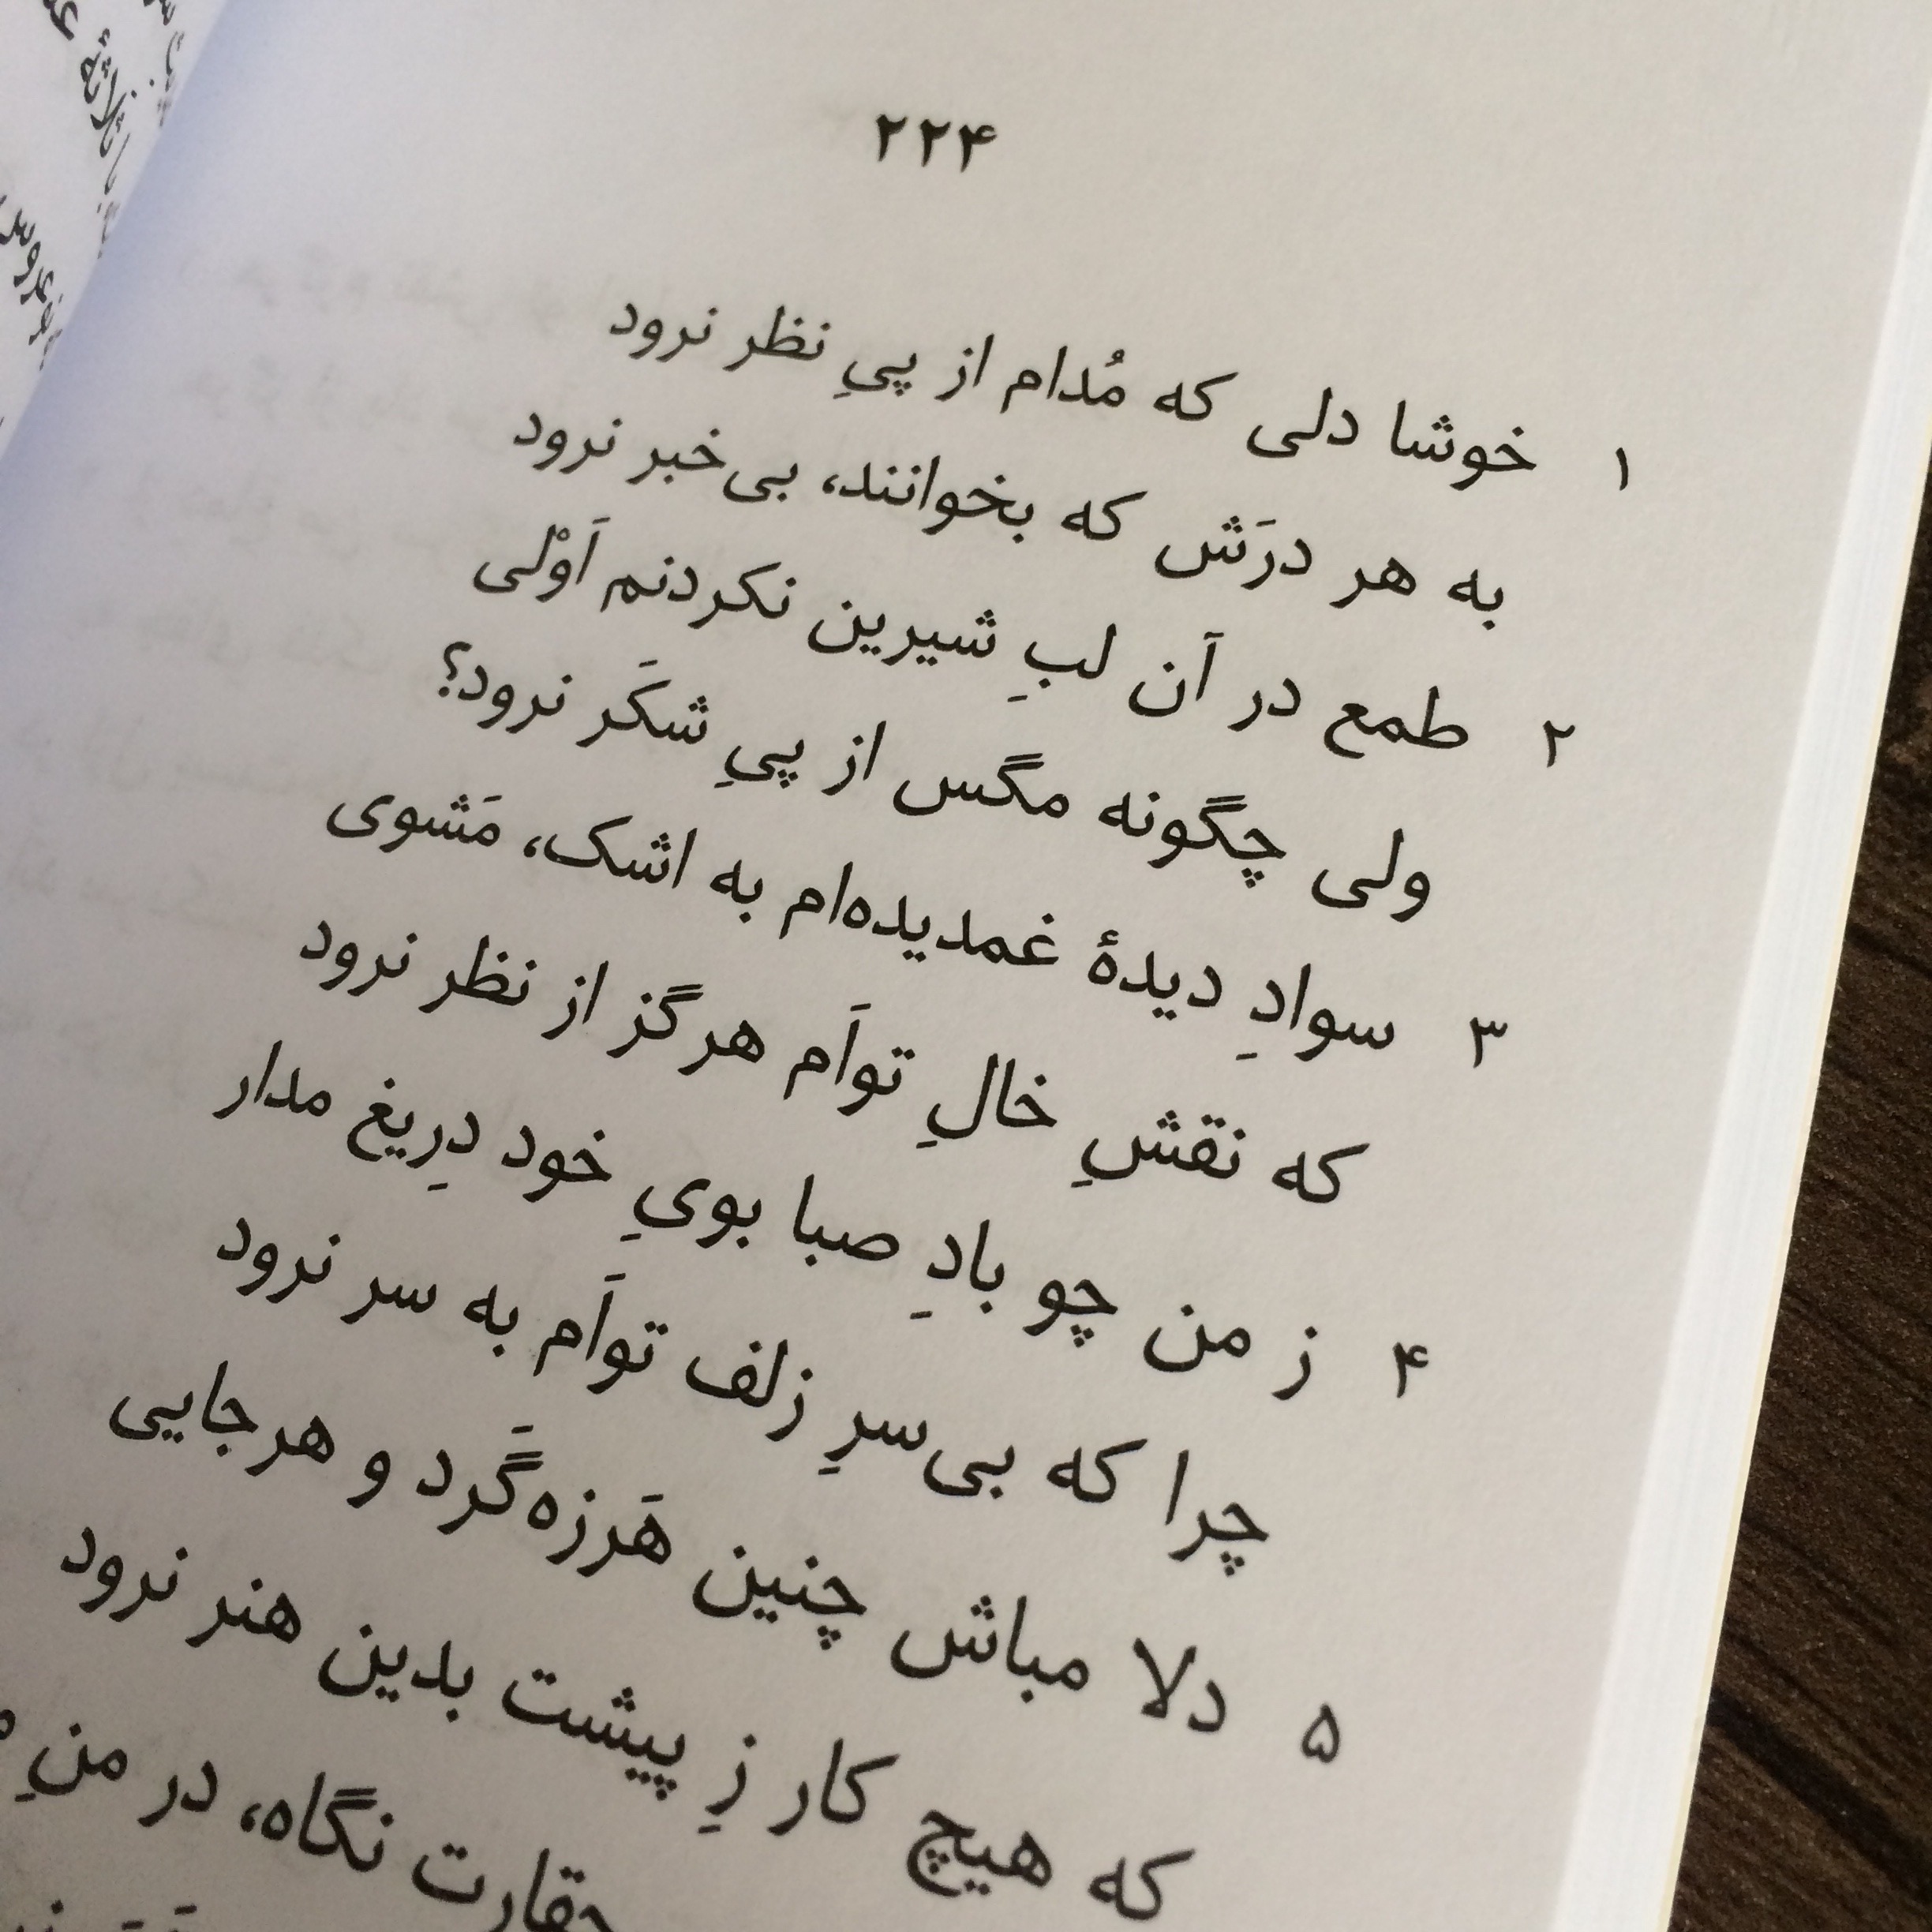 ۲۲۴
۱ خوشا دلی که مُدام از پیِ نظر نرود
به هر درَش که بخوانند، بی‌خبر نرود
۲ طمع در آن لبِ شیرین نکردنم اَوْلی
ولی چگونه مگس از پیِ شکَر نرود؟
۳ سوادِ دیدهٔ غمدیده‌ام به اشک، مَشوی
که نقشِ خالِ تواَم هرگز از نظر نرود
۴ ز من چو بادِ صبا بویِ خود دِریغ مدار
چرا که بی‌سرِ زلف تواَم به سر نرود
۵ دلا مباش چنین هَرزه‌گَرد و هرجایی
که هیچ کار زِ پیشت بدین هنر نرود
حقارت نگاه، در منِ